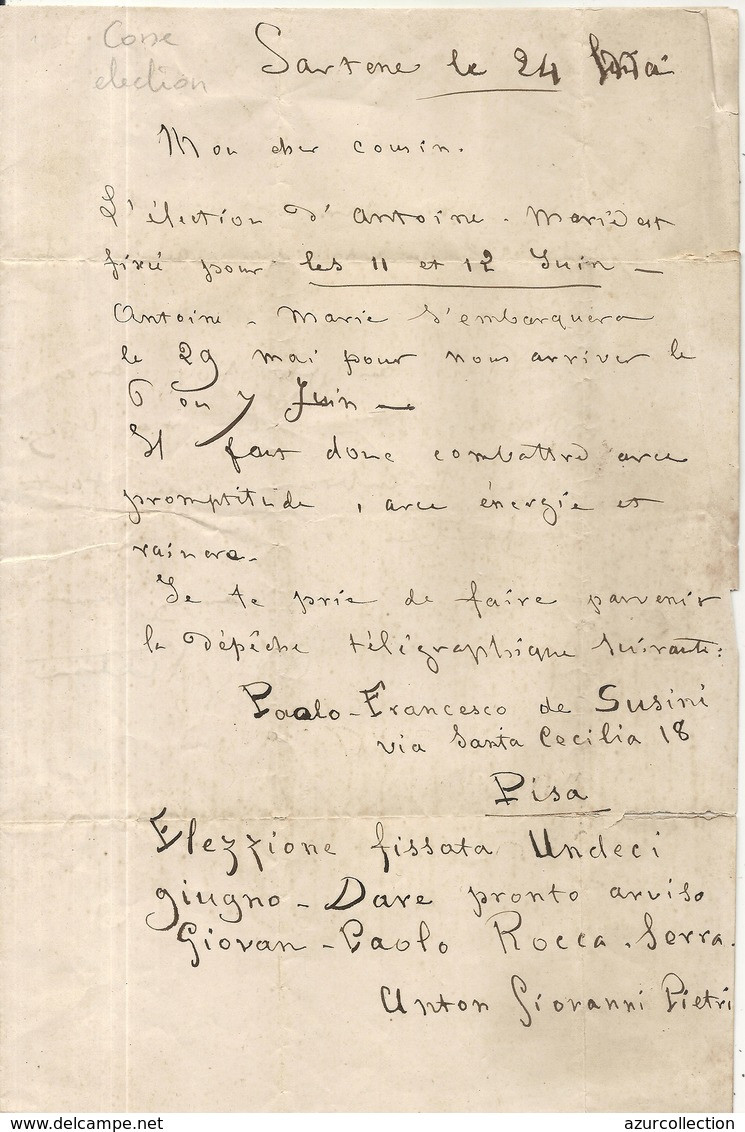 Corse
election
Sartene le 24 Mai
Mon cher cousin.
L'élection d'Antoine - Marie est
fixée pour les 11 et 12 Juin -
Antoine - Marie s'embarquera
le 29 mai pour nous arriver le
6 ou 7 Juin -
Il faut donc combattre avec
promptitude, avec énergie et
vaincre.
Je te prie de faire parvenir
la dépêche télégraphique suivante:
Paolo-Francesco de Susini
via Santa Cecilia 18
Pisa
Elezzione fissata Undeci
giugno - Dare pronto avviso
Giovan - Paolo Rocca - Serra.
Anton Giovanni Pietri
www.delcampe.net
azurcollection